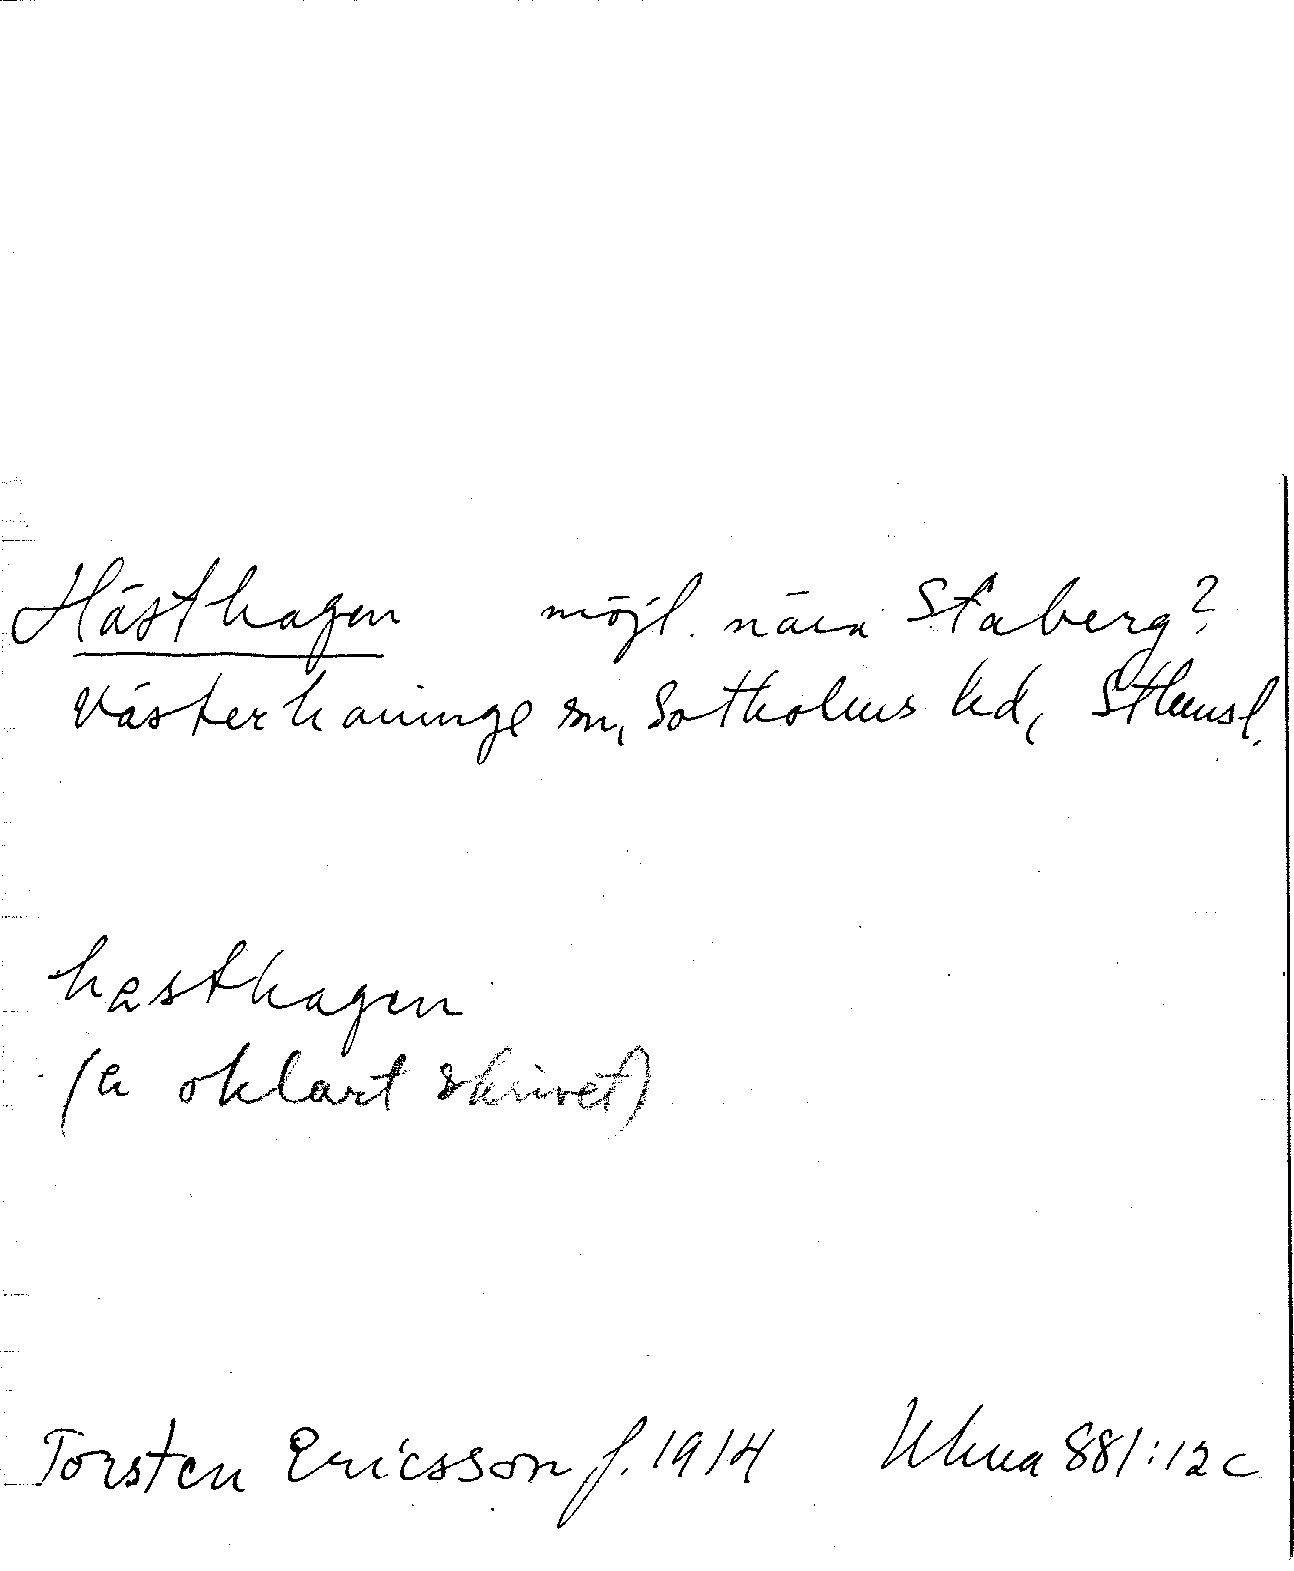 Hästhagen möjl. nära Staberg?
Västerhaninge sn, Sotholms hd, Sthmsl.
hasthagen
(a oklart skrivet)
Torsten Ericsson f. 1914 881:12c